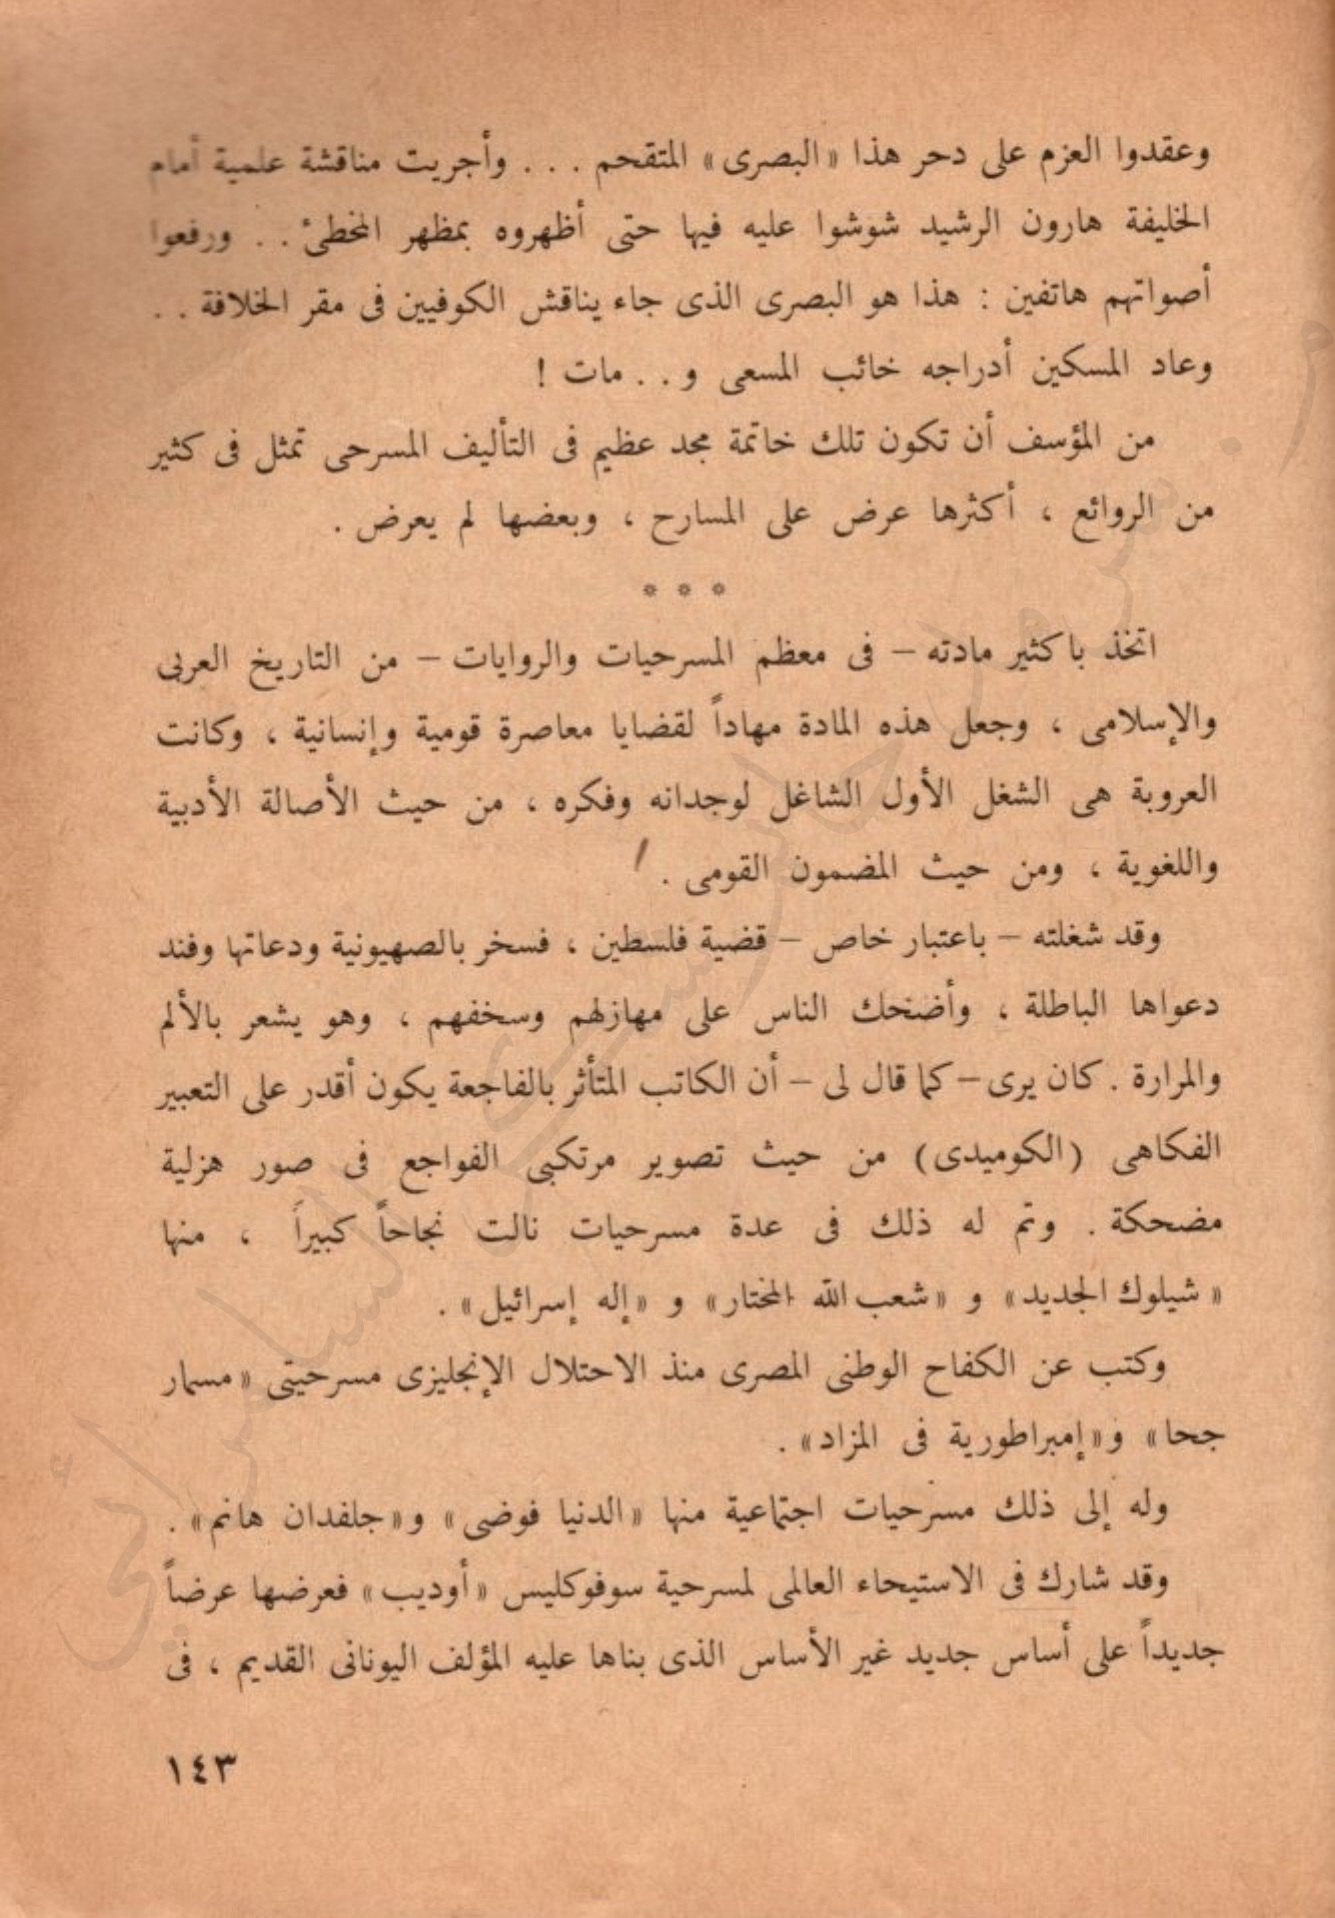 وعقدوا العزم على دحر هذا «البصرى» المتقحم . . . وأجريت مناقشة علمية أمام
الخليفة هارون الرشيد شوشوا عليه فيها حتى أظهروه بمظهر المخطئ . . ورفعوا
أصواتهم هاتفين : هذا هو البصرى الذى جاء يناقش الكوفيين فى مقر الخلافة . .
وعاد المسكين أدراجه خائب المسعى و . . مات !
من المؤسف أن تكون تلك خاتمة مجد عظيم فى التأليف المسرحى تمثل فى كثير
من الروائع ، أكثرها عرض على المسارح ، وبعضها لم يعرض .
* * *
اتخذ باكثير مادته – فى معظم المسرحيات والروايات – من التاريخ العربى
والإسلامى ، وجعل هذه المادة مهاداً لقضايا معاصرة قومية وإنسانية ، وكانت
العروبة هى الشغل الأول الشاغل لوجدانه وفكره ، من حيث الأصالة الأدبية
واللغوية ، ومن حيث المضمون القومى .
وقد شغلته – باعتبار خاص – قضية فلسطين ، فسخر بالصهيونية ودعاتها وفند
دعواها الباطلة ، وأضحك الناس على مهازلهم وسخفهم ، وهو يشعر بالألم
والمرارة . كان يرى – كما قال لى – أن الكاتب المتأثر بالفاجعة يكون أقدر على التعبير
الفكاهى (الكوميدى) من حيث تصوير مرتكبى الفواجع فى صور هزلية
مضحكة . وتم له ذلك فى عدة مسرحيات نالت نجاحاً كبيراً ، منها
«شيلوك الجديد» و «شعب الله المختار» و «إله إسرائيل» .
وكتب عن الكفاح الوطنى المصرى منذ الاحتلال الإنجليزى مسرحيتى «مسمار
جحا» و«إمبراطورية فى المزاد» .
وله إلى ذلك مسرحيات اجتماعية منها «الدنيا فوضى» و«جلفدان هانم» .
وقد شارك فى الاستيحاء العالمى لمسرحية سوفوكليس «أوديب» فعرضها عرضاً
جديداً على أساس جديد غير الأساس الذى بناها عليه المؤلف اليونانى القديم ، فى
١٤٣